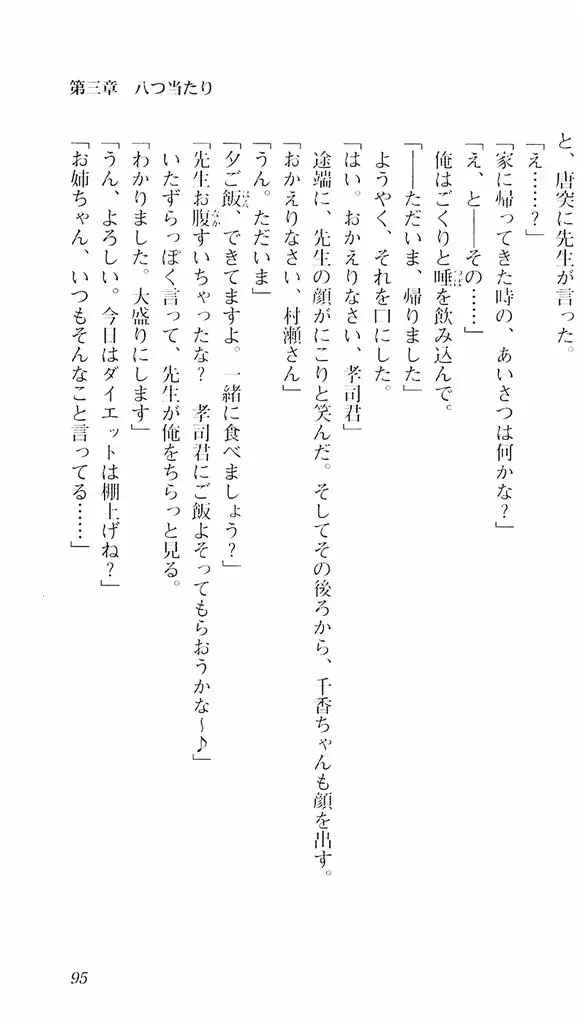 第三章　八つ当たり
と、唐突に先生が言った。
「え……？」
「家に帰ってきた時の、あいさつは何かな？」
「え、と――その……」
俺はごくりと唾を飲み込んで。
「――ただいま、帰りました」
ようやく、それを口にした。
「はい。おかえりなさい、孝司君」
途端に、先生の顔がにこりと笑んだ。そしてその後ろから、千香ちゃんも顔を出す。
「おかえりなさい、村瀬さん」
「うん。ただいま」
「夕ご飯、できてますよ。一緒に食べましょう？」
「先生お腹すいちゃったな？　孝司君にご飯よそってもらおうかな～♪」
いたずらっぽく言って、先生が俺をちらっと見る。
「わかりました。大盛りにします」
「うん、よろしい。今日はダイエットは棚上げね？」
「お姉ちゃん、いつもそんなこと言ってる……」
95